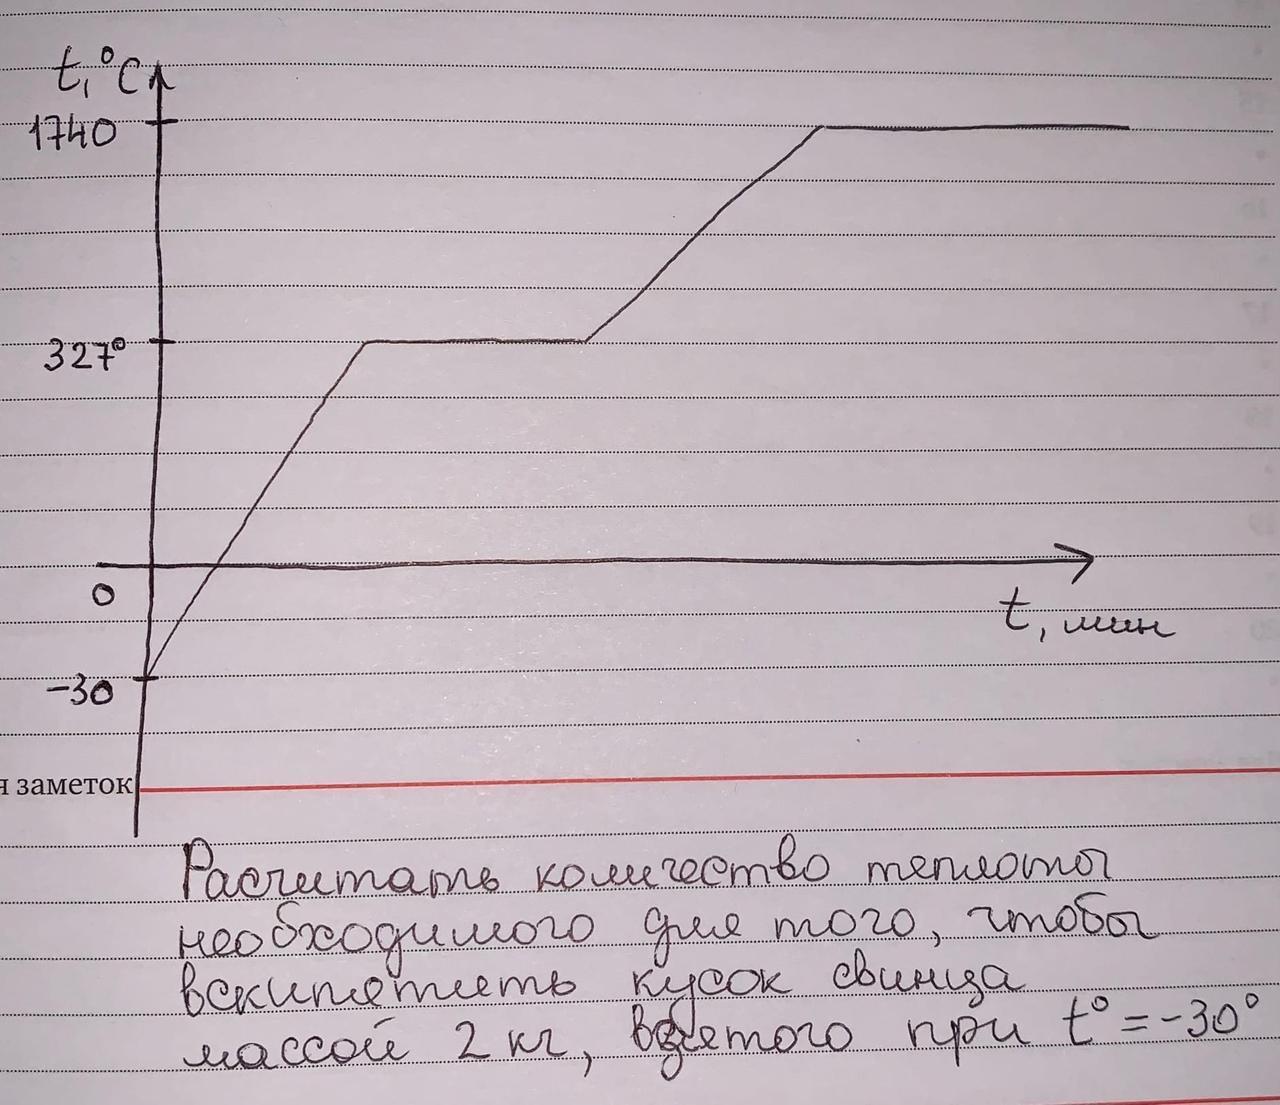 t, °C
1740
327°
0
t, мин
-30
я заметок
Расчитать количество теплоты
необходимого для того, чтобы
вскипятить кусок свинца
массой 2 кг, взятого при t° = -30°